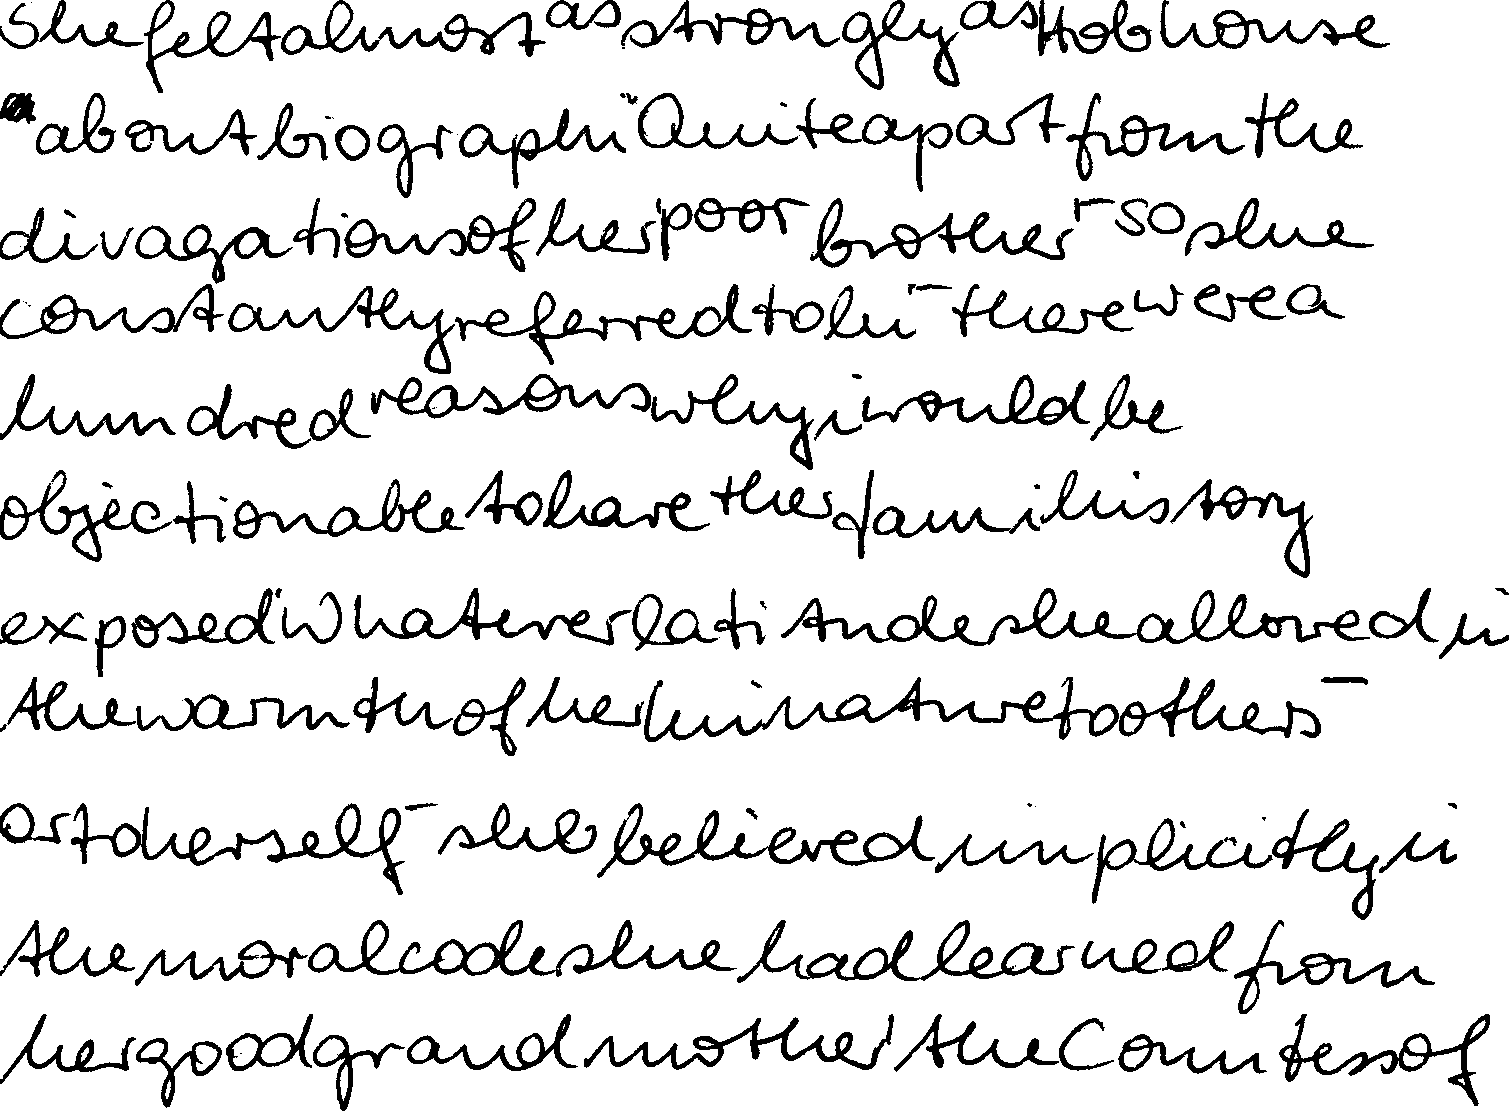 She felt almost as strongly as Hobhouse
about biographi" Quite apart from the
divagations of her poor brother - so she
constantly referred to hi - there were a
hundred reasons why i would be
objectionable to have the famihistory
exposed" Whatever latitude she allowed in
the warmth of her hi nature to others -
or to herself - she believed implicitly in
the moral code she had learned from
her good grandmother the Countess of